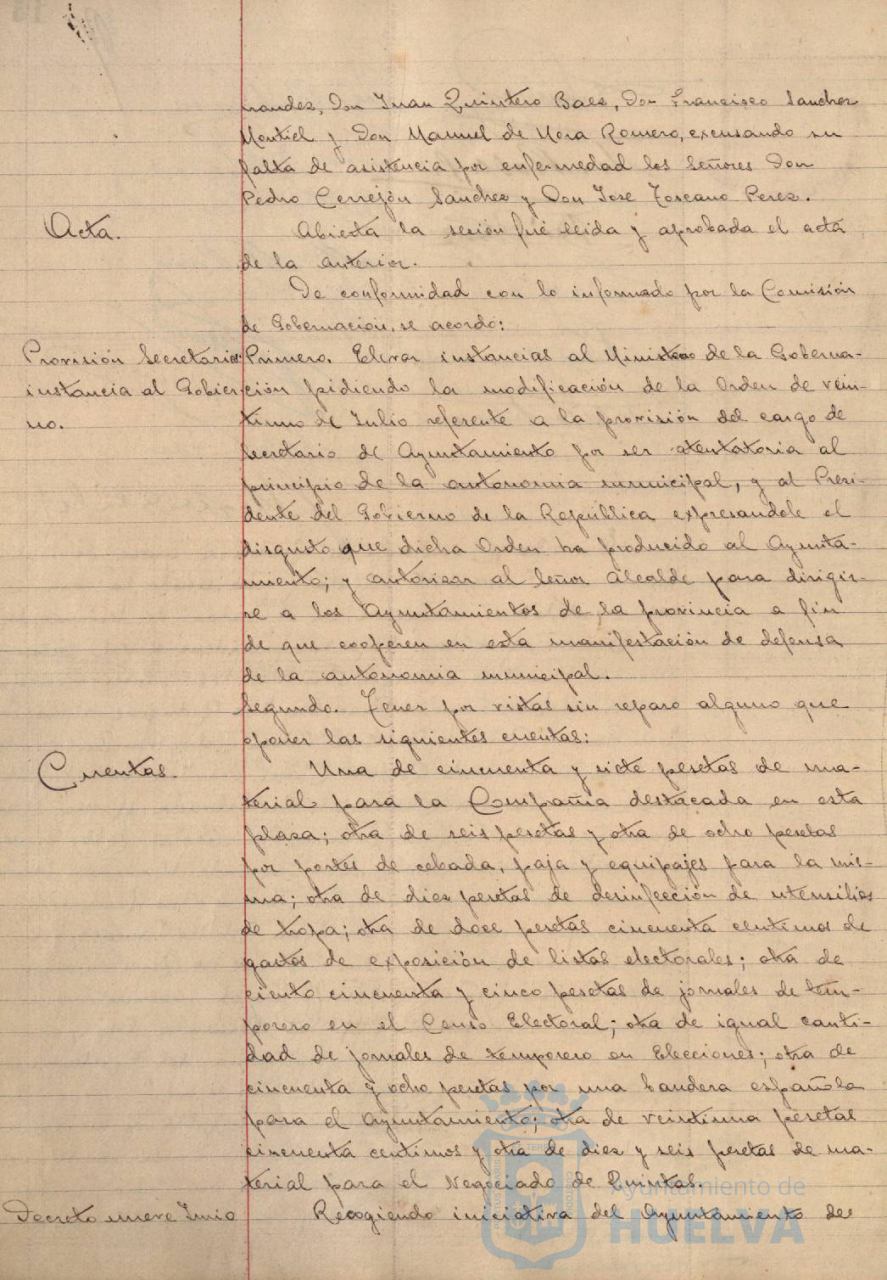 nandez, Don Juan Quintero Baez, Don Francisco Sanchez
Montiel y Don Manuel de Mora Romero, excusando su
falta de asistencia por enfermedad los Señores Don
Pedro Cerrejón Sanchez y Don Jose Toscano Perez.
Acta.
Abierta la sesión fué leida y aprobada el acta
de la anterior.
De conformidad con lo informado por la Comisión
de Gobernación, se acordó:
Provisión Secretario:
instancia al Gobier-
no.
Primero. Elevar instancias al Ministro de la Goberna-
ción pidiendo la modificación de la Orden de vein-
tiuno de Julio referente a la provisión del cargo de
Secretario de Ayuntamiento por ser atentatoria al
principio de la autonomia municipal, y al Presi-
dente del Gobierno de la República expresandole el
disgusto que dicha Orden ha producido al Ayunta-
miento; y autorizar al Señor Alcalde para dirigir-
se a los Ayuntamientos de la provincia a fin
de que cooperen en esta manifestación de defensa
de la autonomia municipal.
Segundo. Tener por vistas sin reparo alguno que
oponer las siguientes cuentas:
Cuentas.
Una de cincuenta y siete pesetas de ma-
terial para la Compañia destacada en esta
plaza; otra de seis pesetas y otra de ocho pesetas
por portes de cebada, paja y equipajes para la mis-
ma; otra de diez pesetas de desinfección de utensilios
de tropa; otra de doce pesetas cincuenta centimos de
gastos de exposición de listas electorales; otra de
ciento cincuenta y cinco pesetas de jornales de tem-
porero en el Censo Electoral; otra de igual canti-
dad de jornales de temporero en Elecciones; otra de
cincuenta y ocho pesetas por una bandera española
para el Ayuntamiento; otra de veintiuna pesetas
cincuenta centimos y otra de diez y seis pesetas de ma-
terial para el Negociado de Quintas.
Decreto nueve Junio
Recogiendo iniciativa del Ayuntamiento de
Ayuntamiento de
HUELVA